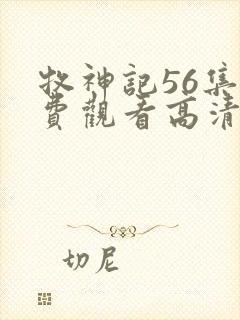 牧神記56集
費觀看高清
切尼